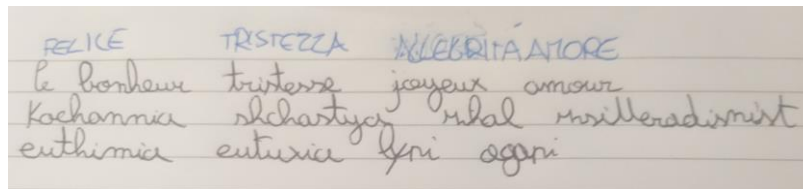 FELICE TRISTEZZA ALLEGRITÁ AMORE
le bonheur tristesse joyeux amour
Kochannia shchastya
euthimia eutuxia lypi agapi